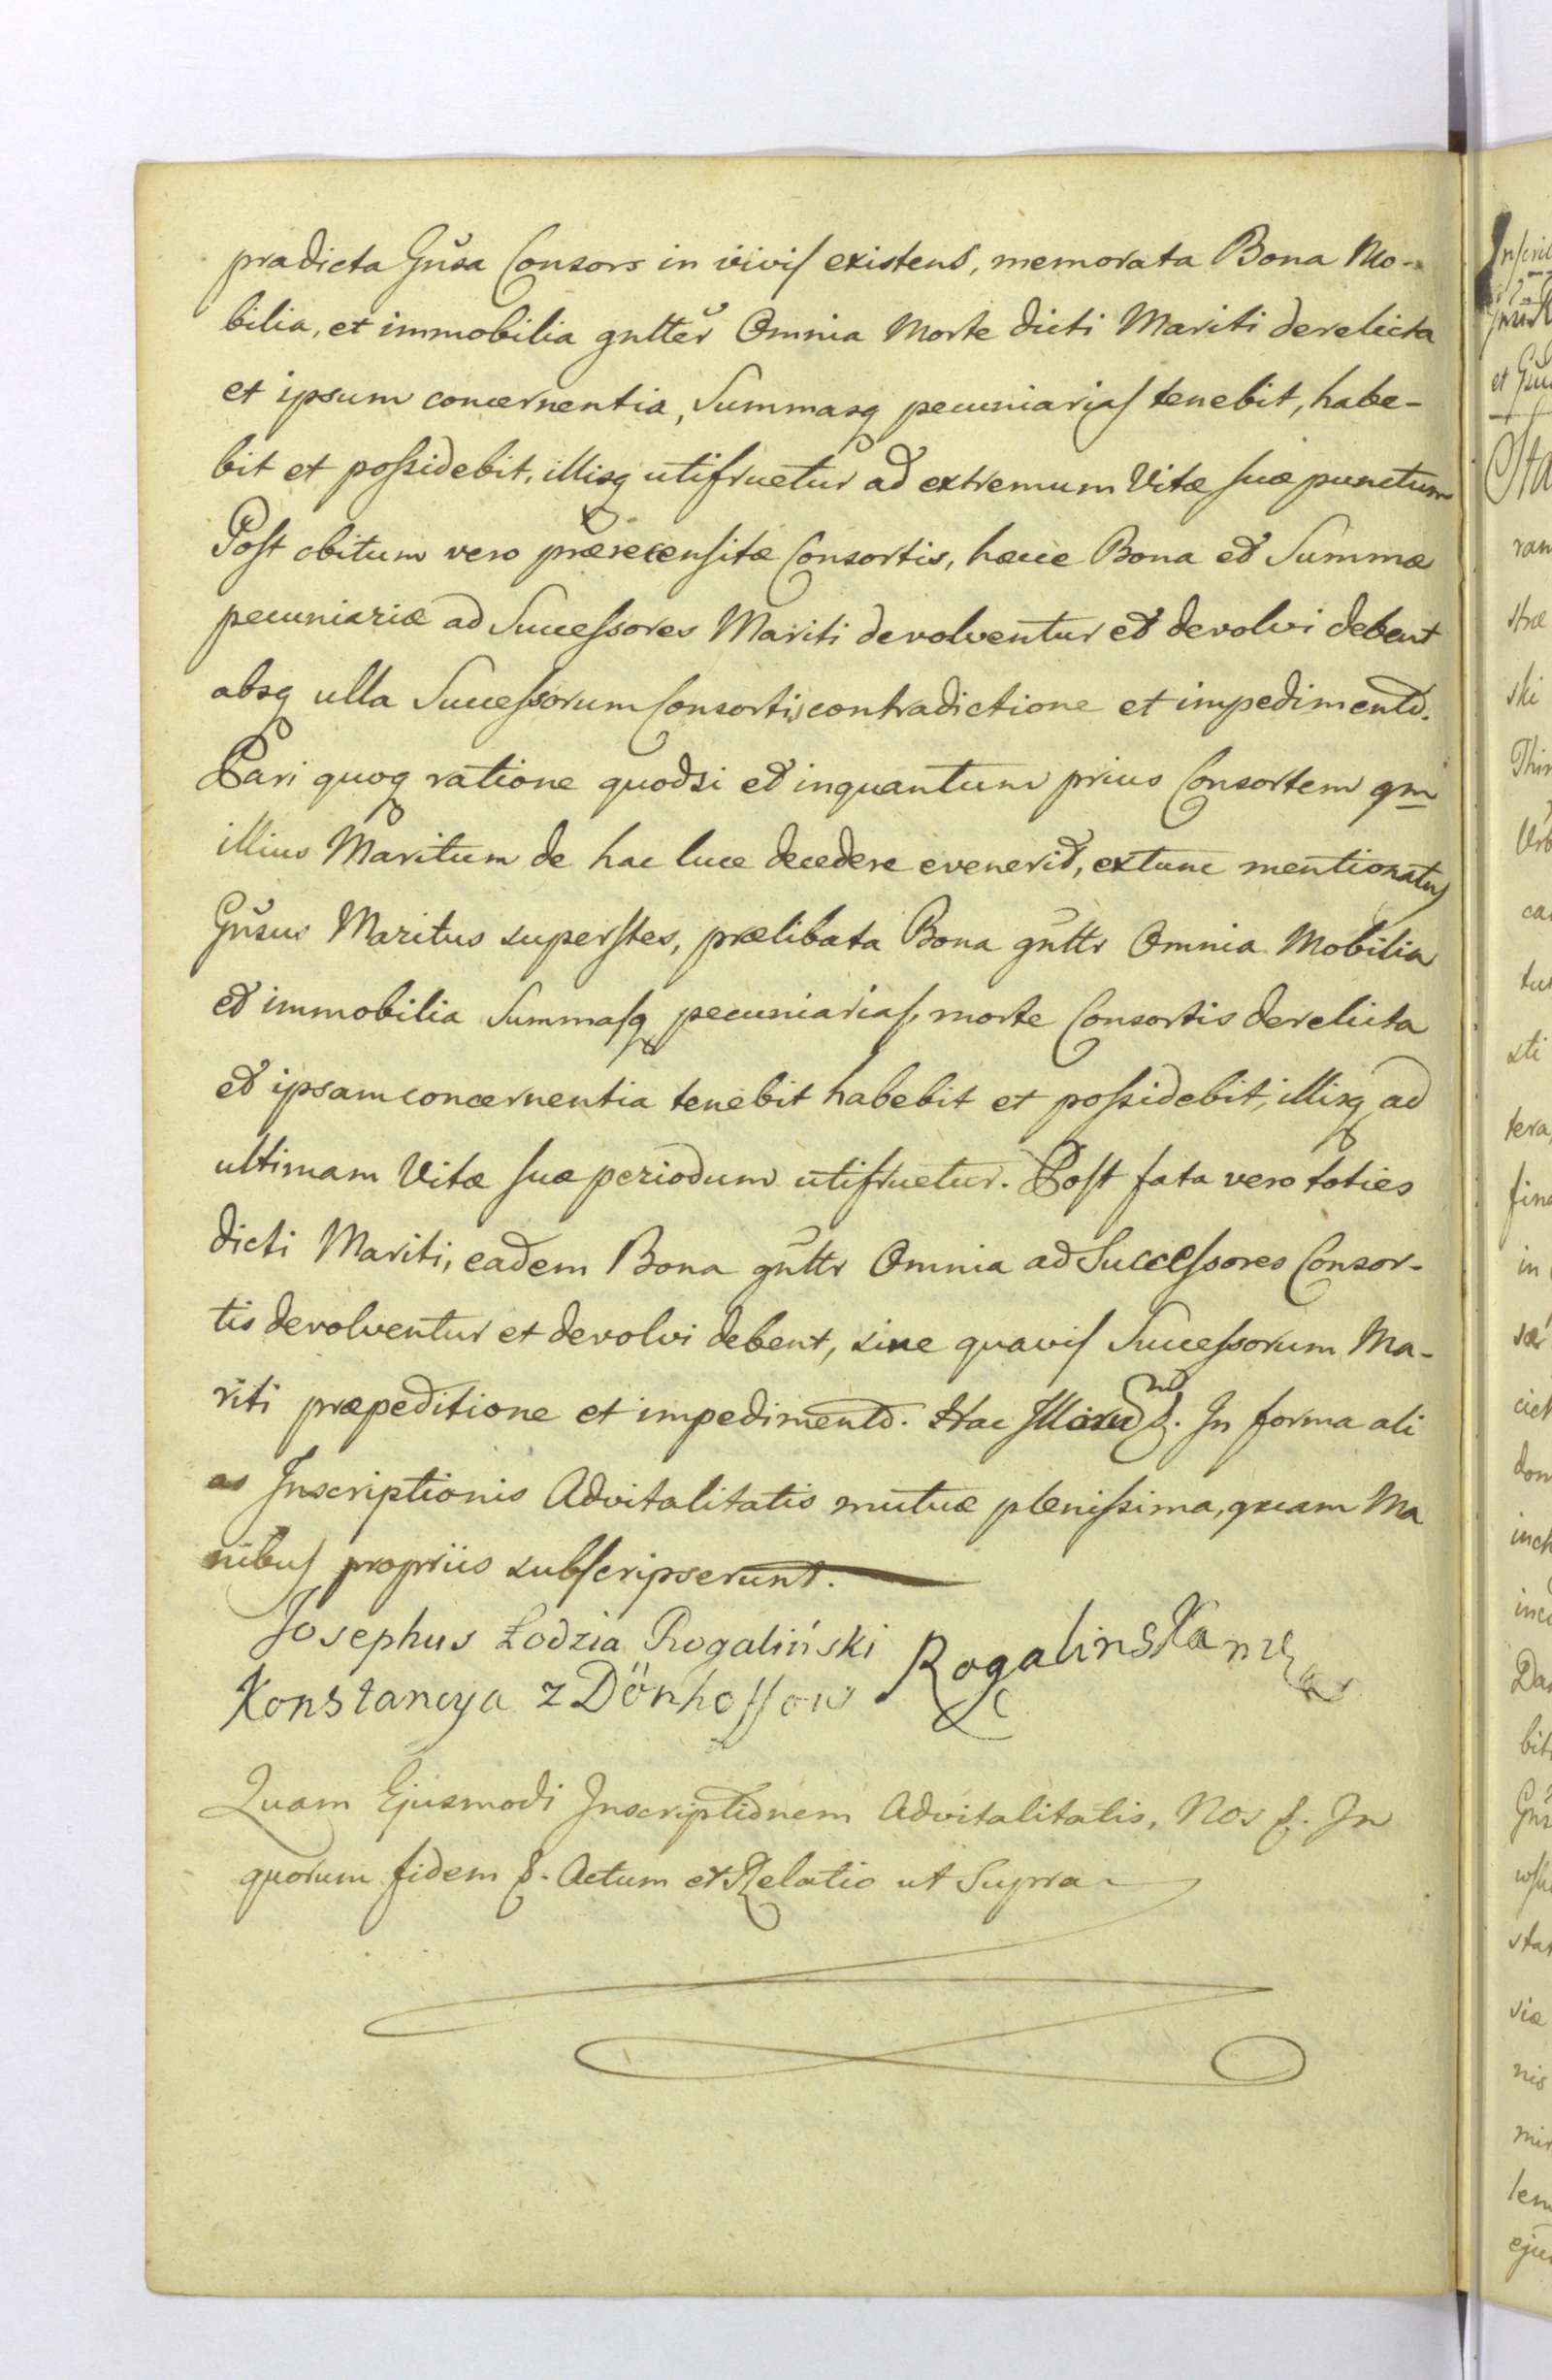 prædicta Gnsa Consors in vivis existens, memorata Bona Mo-
bilia, et immobilia gnlter Omnia Morte dicti Mariti derelicta
et ipsum concernentia, Summasq pecuniarias tenebit, habe-
bit et possidebit, illisq utifruetur ad extremum Vitæ suæ punctum
Post obitum vero præsecensitæ Consortis, hæcce Bona et Summæ
pecuniariæ ad Successores Mariti devolventur et devolvi debent
absq ulla Successorum Consortis contradictione et impedimento.
Pari quoq ratione quodsi et inquantum prius Consortem qm
illius Maritum de hac luce decedere evenerit, extunc mentionatus
Gnsus Maritus superstes, prælibata Bona gnltr Omnia Mobilia
et immobilia Summasq pecuniarias, morte Consortis derelicta
et ipsam concernentia tenebit habebit et possidebit, illisq ad
ultimam Vitæ suæ periodum utifruetur. Post fata vero toties
dicti Mariti, eadem Bona gnltr Omnia ad Successores Consor-
tis devolventur et devolvi debent, sine quavis Successorum Ma-
riti præpeditione et impedimento. Hac In forma ali
as Inscriptionis Advitalitatis mutuæ plenissima, quam Ma
nibus propriis subscripserunt.
Josephus Łodzia Rogaliński
Konstancya z Dönhoffow Rogalinska
Quam Ejusmodi Inscriptionem Advitalitatis, Nos &. In
quorum fidem &. Actum et Relatio ut Supra